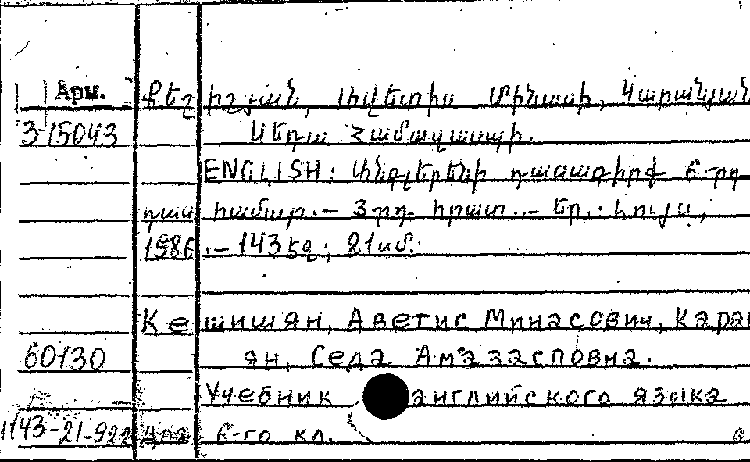 Арм. Քեշիշյան, Ավետիս Մինասի, Կարանյան
3 15043 Սեդա Համազասպի.
ENGLISH: Անգլերենի դասագիրք 6-րդ
դաս համար.— 3-րդ. հրատ.— Եր.: Լույս,
1986.— 143 էջ; 21 սմ.
Кешишян, Аветис Минасович, Кара
60130 ян, Седа Амазасповна.
Учебник английского языка
1143-21-922 для 6-го кл.